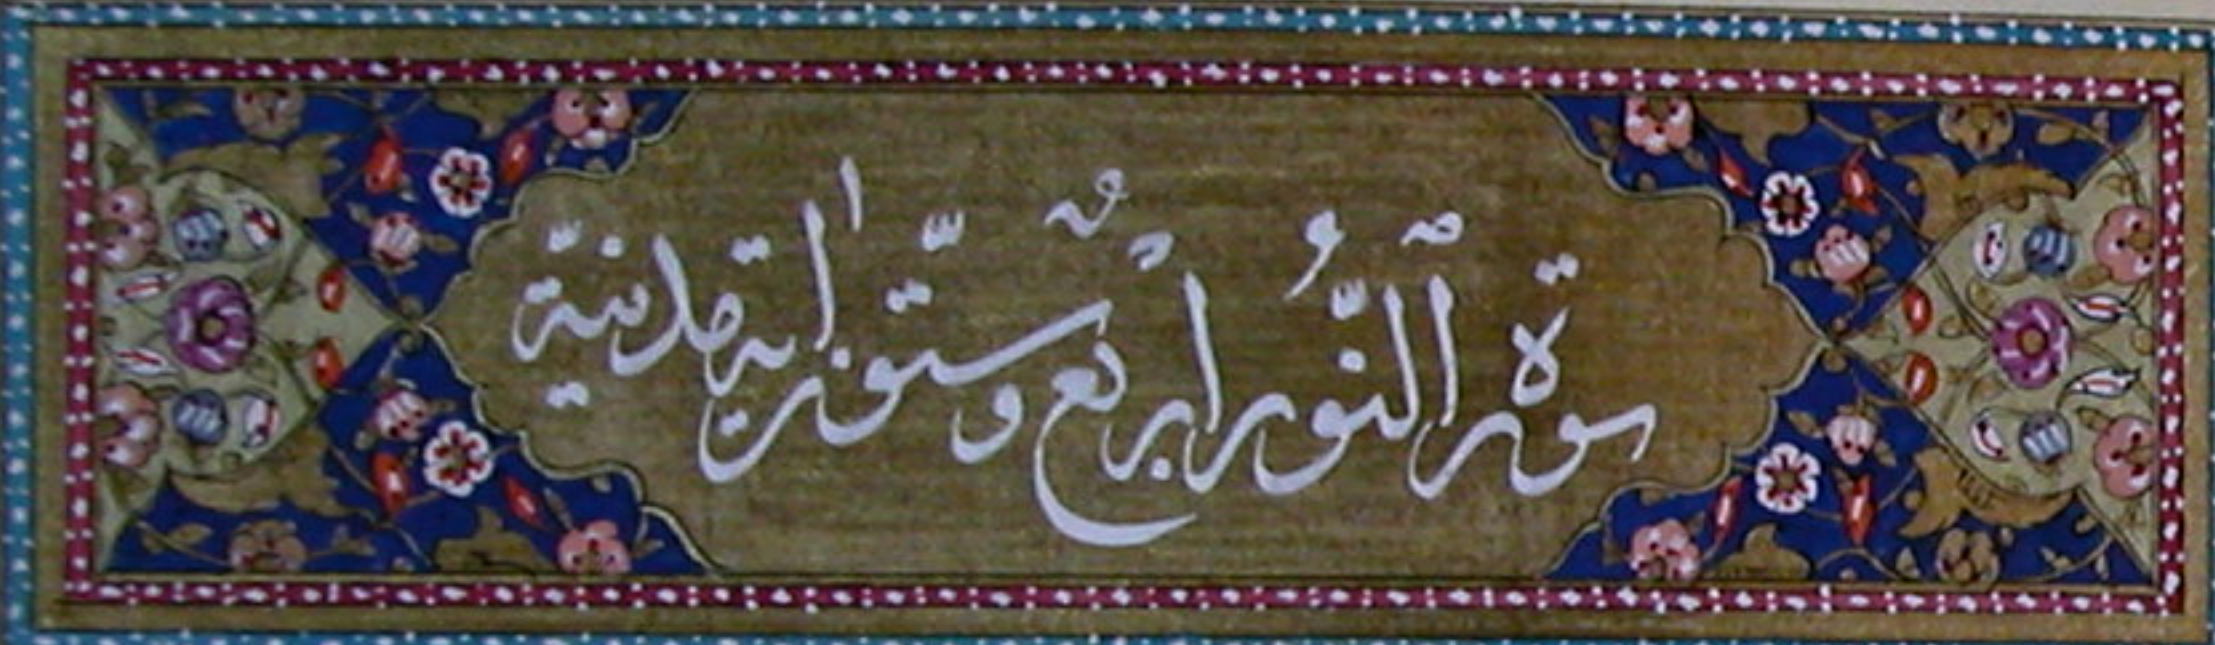 سورة ٱلنُّور اربعٌ وستّون اٰية مدنيّة